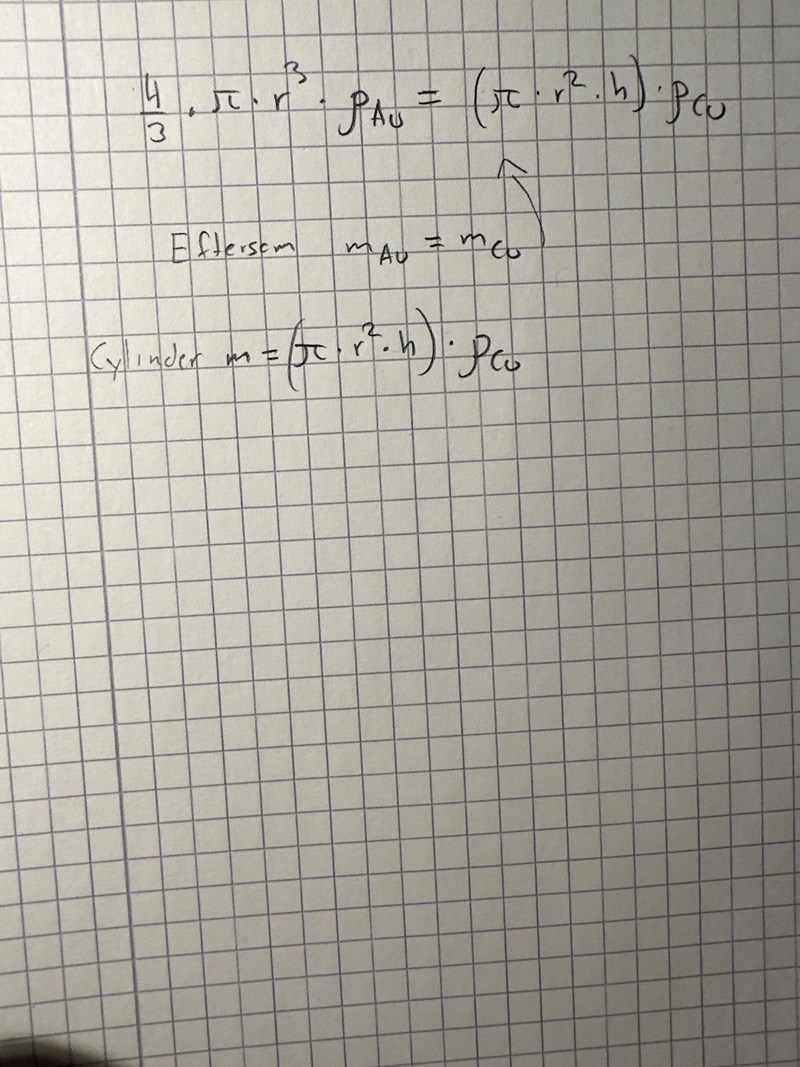 4/3 · π · r³ · ρ_Au = (π · r² · h) · ρ_Cu
Eftersom m_Au = m_Cu
Cylinder m = (π · r² · h) · ρ_Cu